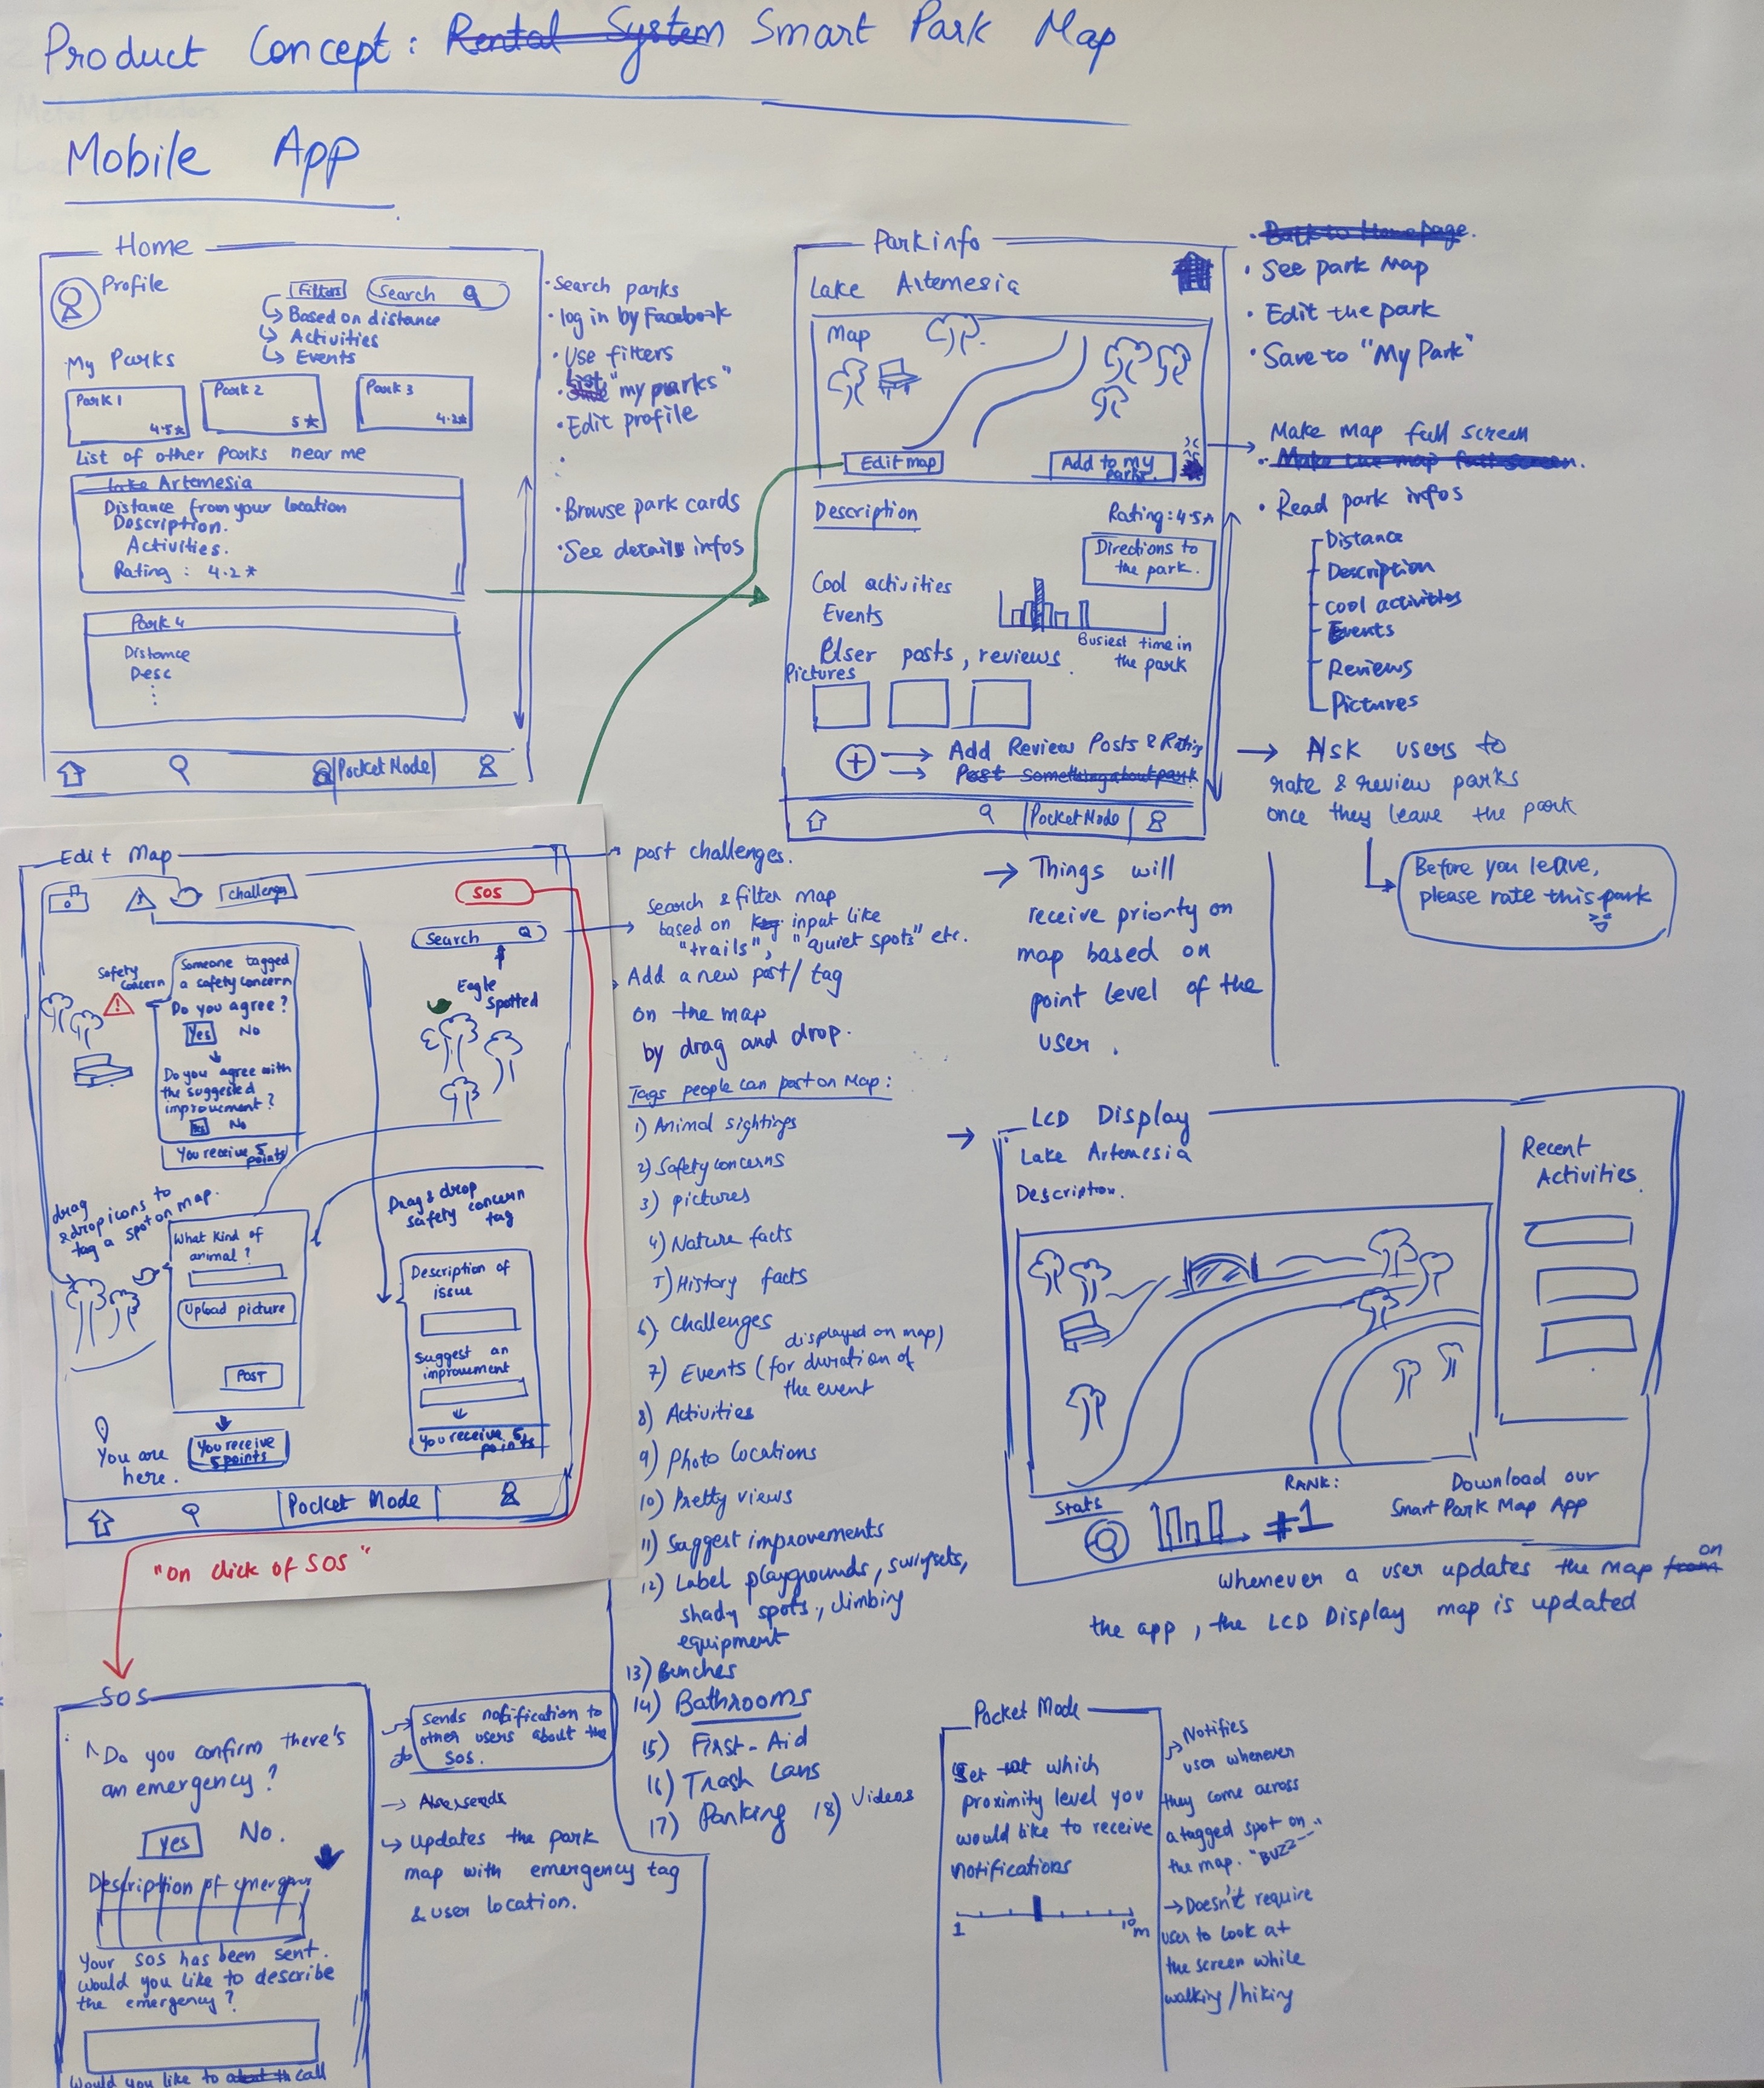 Product Concept: Rental System Smart Park Map
Mobile App
Home
Profile
Filters
Search
Based on distance
Activities
Events
My Parks
Park 1
4.5★
Park 2
5★
Park 3
4.2★
List of other parks near me
Lake Artemesia
Distance from your location
Description.
Activities.
Rating : 4.2★
Park 4
Distance
Desc
Pocket Mode
• Search parks
• log in by Facebook
• Use filters
• "my parks"
• Edit profile
• Browse park cards
• See details infos
Park info
Lake Artemesia
Map
Edit map
Add to my
parks.
Description
Rating: 4.5★
Directions to
the park.
Cool activities
Events
Busiest time in
the park
User posts, reviews
Pictures
+ → Add Review Posts & Rating
→ Post something about park
Pocket Mode
• Back to Homepage.
• See park Map
• Edit the park
• Save to "My Park"
Make map full screen
• Make the map full screen.
• Read park infos
Distance
Description
Cool activities
Events
Reviews
Pictures
→ Ask users to
rate & review parks
once they leave the park
Before you leave,
please rate this park
Edit Map
Challenges
SOS
Search
Safety
Concern
Someone tagged
a safety concern
Do you agree?
Yes No
Do you agree with
the suggested
improvement?
Yes No
You receive 5
points
Eagle
Spotted
drag
& drop icons to
tag a spot on map.
What kind of
animal?
Upload picture
POST
You receive
5 points
Drag & drop
safety concern
tag
Description of
issue
Suggest an
improvement
You receive 5
points
You are
here.
Pocket Mode
"On click of SOS"
post challenges.
Search & filter map
based on key input like
"trails", "quiet spots" etc.
Add a new post/ tag
on the map
by drag and drop.
Tags people can post on Map:
1) Animal sightings
2) Safety concerns
3) pictures
4) Nature facts
5) History facts
6) Challenges
7) Events (for duration of
the event
displayed on map)
8) Activities
9) Photo locations
10) Pretty views
11) Suggest improvements
12) Label playgrounds, swingsets,
shady spots, climbing
equipment
13) Benches
14) Bathrooms
15) First-Aid
16) Trash Cans
17) Parking 18) Videos
→ Things will
receive priority on
map based on
point level of the
user.
→ LCD Display
Lake Artemesia
Description.
Recent
Activities
Stats
RANK:
#1
Download our
Smart Park Map App
Whenever a user updates the map from on
the app, the LCD Display map is updated
SOS
Do you confirm there's
an emergency?
Yes No.
Description of emergency
Your SOS has been sent.
Would you like to describe
the emergency?
Would you like to call
Sends notification to
other users about the
SOS.
→ Also sends
Updates the park
map with emergency tag
& user location.
Pocket Mode
Set which
proximity level you
would like to receive
notifications
1 10 m
→ Notifies
user whenever
they come across
a tagged spot on
the map. "BUZZ--"
→ Doesn't require
user to look at
the screen while
walking/hiking